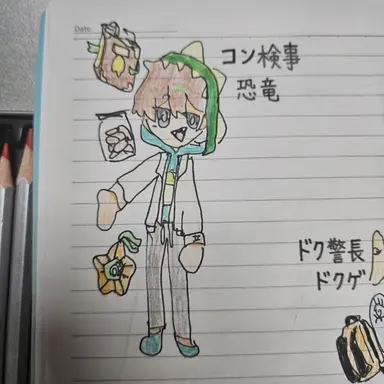 Date
コン検事
恐竜
ドク警長
ドクゲ